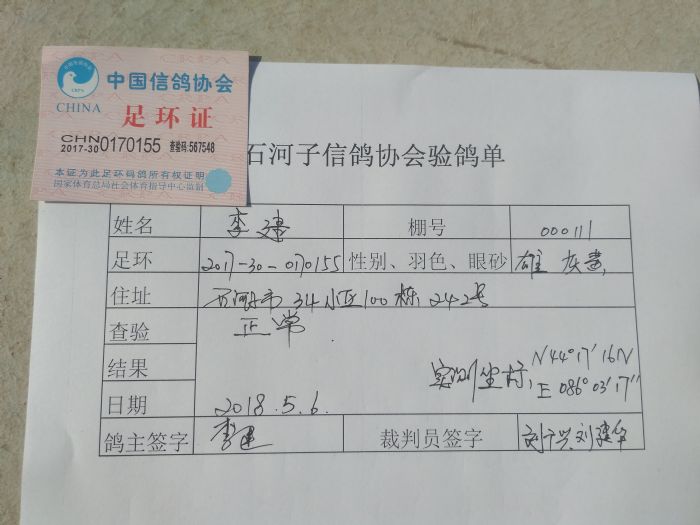 中国信鸽协会
CHINA
足环证
CHN
2017-30 0170155 查验码:567548
本证为此足环码鸽所有权证明
国家体育总局社会体育指导中心监制
石河子信鸽协会验鸽单
姓名 李建 棚号 000111
足环 2017-30-0170155 性别、羽色、眼砂 雄 灰 黄
住址 石河子市 34小区100栋 242号
查验 正常
结果 实测坐标, N44°17'16N
E 086°03'17"
日期 2018.5.6.
鸽主签字 李建 裁判员签字 刘建华